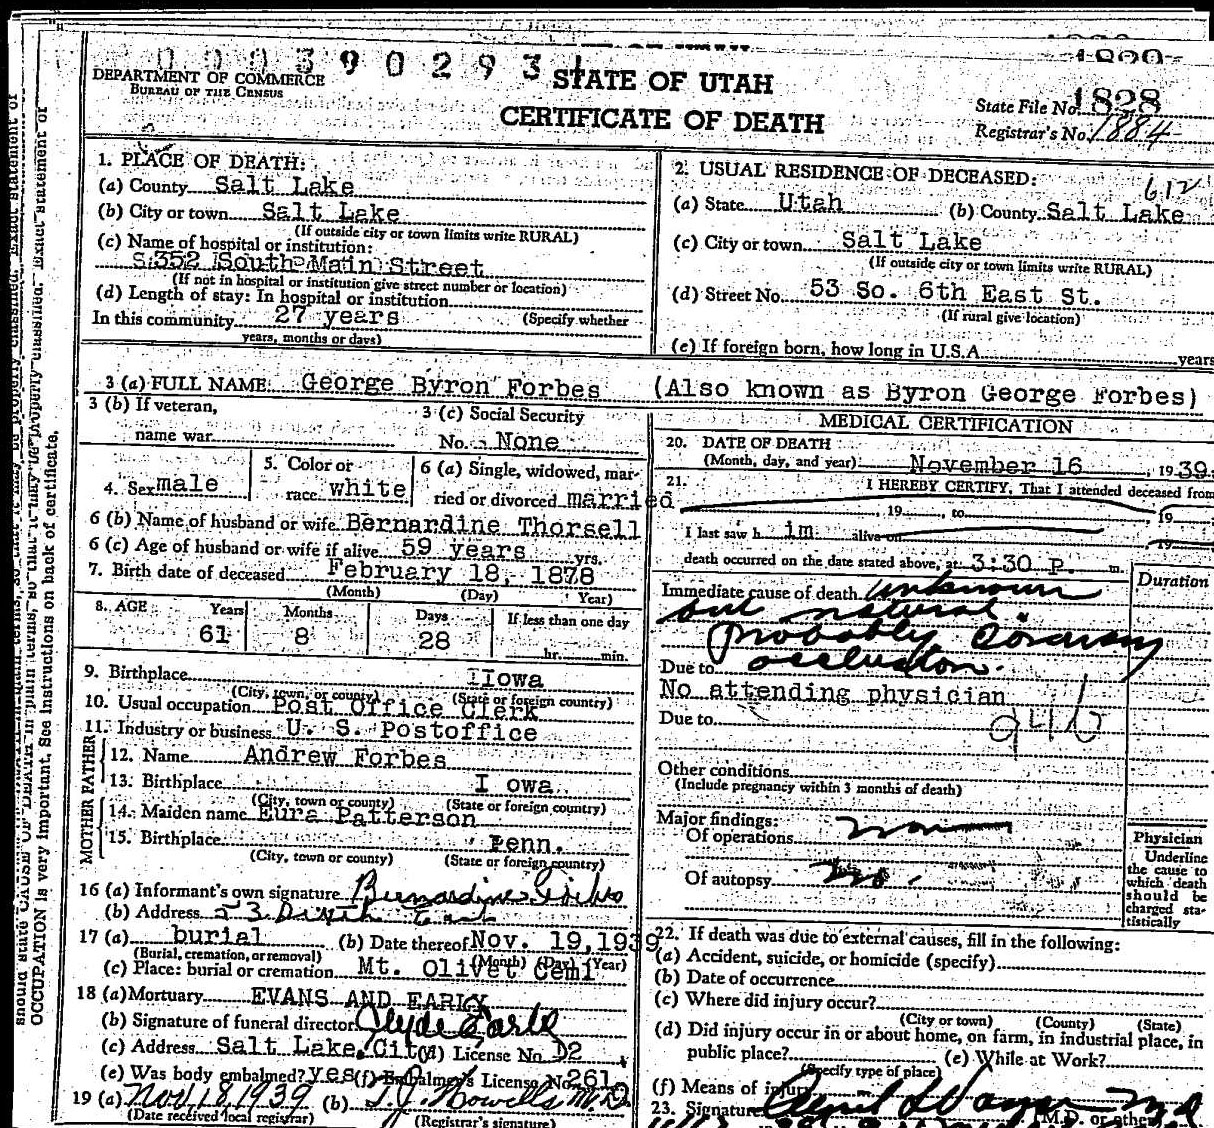 0 0 0 3 9 0 2 9 3 1
DEPARTMENT OF COMMERCE
BUREAU OF THE CENSUS
STATE OF UTAH
CERTIFICATE OF DEATH
State File No. 1828
Registrar's No. 1884
1. PLACE OF DEATH:
(a) County Salt Lake
(b) City or town Salt Lake
(If outside city or town limits write RURAL)
(c) Name of hospital or institution:
S.352 South Main Street
(If not in hospital or institution give street number or location)
(d) Length of stay: In hospital or institution
In this community 27 years (Specify whether
years, months or days)
2. USUAL RESIDENCE OF DECEASED:
612
(a) State Utah (b) County Salt Lake
(c) City or town Salt Lake
(If outside city or town limits write RURAL)
(d) Street No. 53 So. 6th East St.
(If rural give location)
(e) If foreign born, how long in U.S.A. years
3 (a) FULL NAME: George Byron Forbes (Also known as Byron George Forbes)
3 (b) If veteran,
name war
3 (c) Social Security
No. None
4. Sex male
5. Color or
race white
6 (a) Single, widowed, mar-
ried or divorced married
6 (b) Name of husband or wife Bernardine Thorsell
6 (c) Age of husband or wife if alive 59 years yrs.
7. Birth date of deceased February 18, 1878
(Month) (Day) (Year)
8. AGE Years Months Days If less than one day
61 8 28 hr. min.
9. Birthplace Iowa
(City, town, or county) (State or foreign country)
10. Usual occupation Post Office Clerk
11. Industry or business U. S. Postoffice
FATHER
12. Name Andrew Forbes
13. Birthplace Iowa
(City, town or county) (State or foreign country)
MOTHER
14. Maiden name Eura Patterson
15. Birthplace Penn.
(City, town or county) (State or foreign country)
16 (a) Informant's own signature Bernardine Forbes
(b) Address 53 Sixth East
17 (a) burial (b) Date thereof Nov. 19, 1939
(Burial, cremation, or removal) (Month) (Day) (Year)
(c) Place: burial or cremation Mt. Olivet Cem
18 (a) Mortuary EVANS AND EARLY
(b) Signature of funeral director Clyde Early
(c) Address Salt Lake City (d) License No. D2
(e) Was body embalmed? yes (f) Embalmer's License No. 261
19 (a) Nov. 18, 1939 (b) T.J. Howells M.D.
(Date received local registrar) (Registrar's signature)
MEDICAL CERTIFICATION
20. DATE OF DEATH
(Month, day, and year) November 16, 1939
21. I HEREBY CERTIFY, That I attended deceased from
, 19 , to , 19
I last saw him alive on , 19
death occurred on the date stated above, at 3:30 P. m.
Duration
Immediate cause of death unknown
but natural
probably coronary
Due to occlusion.
No attending physician
Due to 94b
Other conditions
(Include pregnancy within 3 months of death)
Major findings:
Of operations
Of autopsy no.
Physician
Underline
the cause to
which death
should be
charged sta-
tistically
22. If death was due to external causes, fill in the following:
(a) Accident, suicide, or homicide (specify)
(b) Date of occurrence
(c) Where did injury occur?
(City or town) (County) (State)
(d) Did injury occur in or about home, on farm, in industrial place, in
public place? (e) While at Work?
(Specify type of place)
(f) Means of injury
23. Signature (M.D. or other)
OCCUPATION is very important. See instructions on back of certificate.